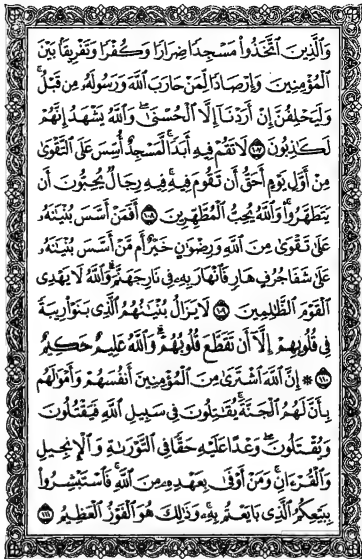 وَٱلَّذِينَ ٱتَّخَذُوا۟ مَسْجِدًا ضِرَارًا وَكُفْرًا وَتَفْرِيقًۢا بَيْنَ
ٱلْمُؤْمِنِينَ وَإِرْصَادًا لِّمَنْ حَارَبَ ٱللَّهَ وَرَسُولَهُۥ مِن قَبْلُ ۚ
وَلَيَحْلِفُنَّ إِنْ أَرَدْنَآ إِلَّا ٱلْحُسْنَىٰ ۖ وَٱللَّهُ يَشْهَدُ إِنَّهُمْ
لَكَـٰذِبُونَ ١٠٧ لَا تَقُمْ فِيهِ أَبَدًا ۚ لَّمَسْجِدٌ أُسِّسَ عَلَى ٱلتَّقْوَىٰ
مِنْ أَوَّلِ يَوْمٍ أَحَقُّ أَن تَقُومَ فِيهِ ۚ فِيهِ رِجَالٌ يُحِبُّونَ أَن
يَتَطَهَّرُوا۟ ۚ وَٱللَّهُ يُحِبُّ ٱلْمُطَّهِّرِينَ ١٠٨ أَفَمَنْ أَسَّسَ بُنْيَـٰنَهُۥ
عَلَىٰ تَقْوَىٰ مِنَ ٱللَّهِ وَرِضْوَٰنٍ خَيْرٌ أَم مَّنْ أَسَّسَ بُنْيَـٰنَهُۥ
عَلَىٰ شَفَا جُرُفٍ هَارٍ فَٱنْهَارَ بِهِۦ فِى نَارِ جَهَنَّمَ ۗ وَٱللَّهُ لَا يَهْدِى
ٱلْقَوْمَ ٱلظَّـٰلِمِينَ ١٠٩ لَا يَزَالُ بُنْيَـٰنُهُمُ ٱلَّذِى بَنَوْا۟ رِيبَةً
فِى قُلُوبِهِمْ إِلَّآ أَن تَقَطَّعَ قُلُوبُهُمْ ۗ وَٱللَّهُ عَلِيمٌ حَكِيمٌ
١١٠ ۞ إِنَّ ٱللَّهَ ٱشْتَرَىٰ مِنَ ٱلْمُؤْمِنِينَ أَنفُسَهُمْ وَأَمْوَٰلَهُم
بِأَنَّ لَهُمُ ٱلْجَنَّةَ ۚ يُقَـٰتِلُونَ فِى سَبِيلِ ٱللَّهِ فَيَقْتُلُونَ
وَيُقْتَلُونَ ۖ وَعْدًا عَلَيْهِ حَقًّا فِى ٱلتَّوْرَىٰةِ وَٱلْإِنجِيلِ
وَٱلْقُرْءَانِ ۚ وَمَنْ أَوْفَىٰ بِعَهْدِهِۦ مِنَ ٱللَّهِ ۚ فَٱسْتَبْشِرُوا۟
بِبَيْعِكُمُ ٱلَّذِى بَايَعْتُم بِهِۦ ۚ وَذَٰلِكَ هُوَ ٱلْفَوْزُ ٱلْعَظِيمُ ١١١